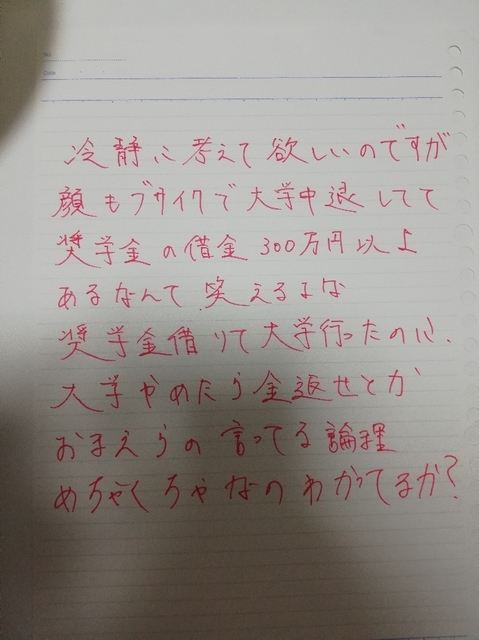 No.
Date
冷静に考えて欲しいのですが
顔もブサイクで大学中退してて
奨学金の借金300万円以上
あるなんて笑えるよな
奨学金借りて大学行ったのに、
大学やめたら金返せとか
おまえらの言ってる論理
めちゃくちゃなのわかってるか?